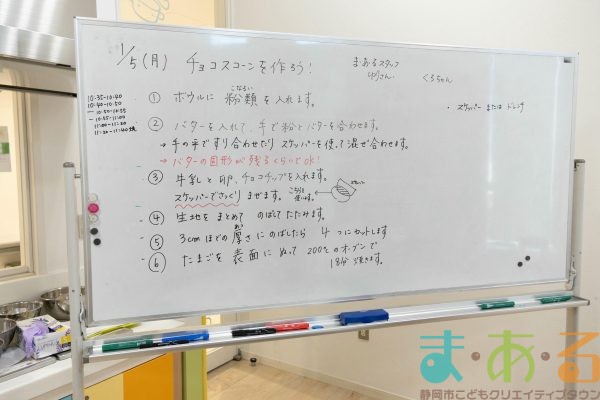 1/5(月) チョコスコーンを作ろう!
ま・あ・るスタッフ
ゆりさん
くろちゃん
10:35-10:40
10:40-10:50
10:50-10:55
10:55-11:00
11:00-11:20
11:20-11:40 焼
・スケッパー または ドレッジ
① ボウルに 粉類を 入れます。
こなるい
② バターを入れて、手で粉とバターを合わせます。
→ 手の平ですり合わせたり スケッパーを使って混ぜ合わせます。
→ バターの固形が残るくらいでOK!
③ 牛乳と卵、チョコチップを入れます。
スケッパーでさっくり まぜます。
④ 生地を まとめて のばしてたたみます。
⑤ 3cmほどの厚さにのばしたら 4つにカットします
あつ
⑥ たまごを 表面に ぬって 200℃のオーブンで
18分 焼きます。
ま・あ・る
静岡市こどもクリエイティブタウン